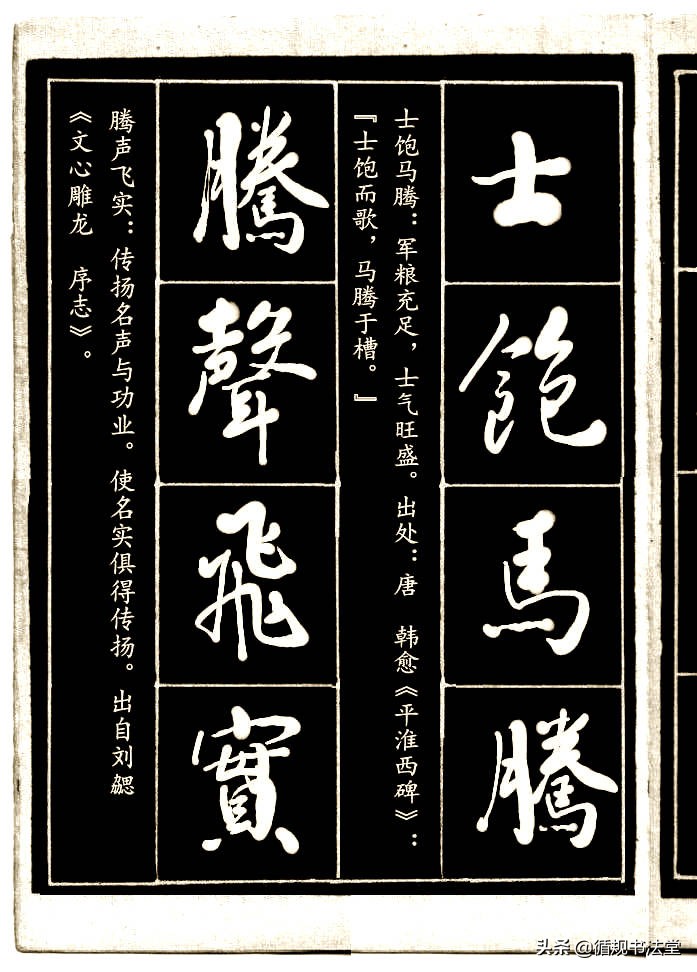 士飽馬騰
士饱马腾：军粮充足，士气旺盛。出处：唐 韩愈《平淮西碑》：
『士饱而歌，马腾于槽。』
騰聲飛實
腾声飞实：传扬名声与功业。使名实俱得传扬。出自刘勰
《文心雕龙 序志》。
头条 @循规书法堂